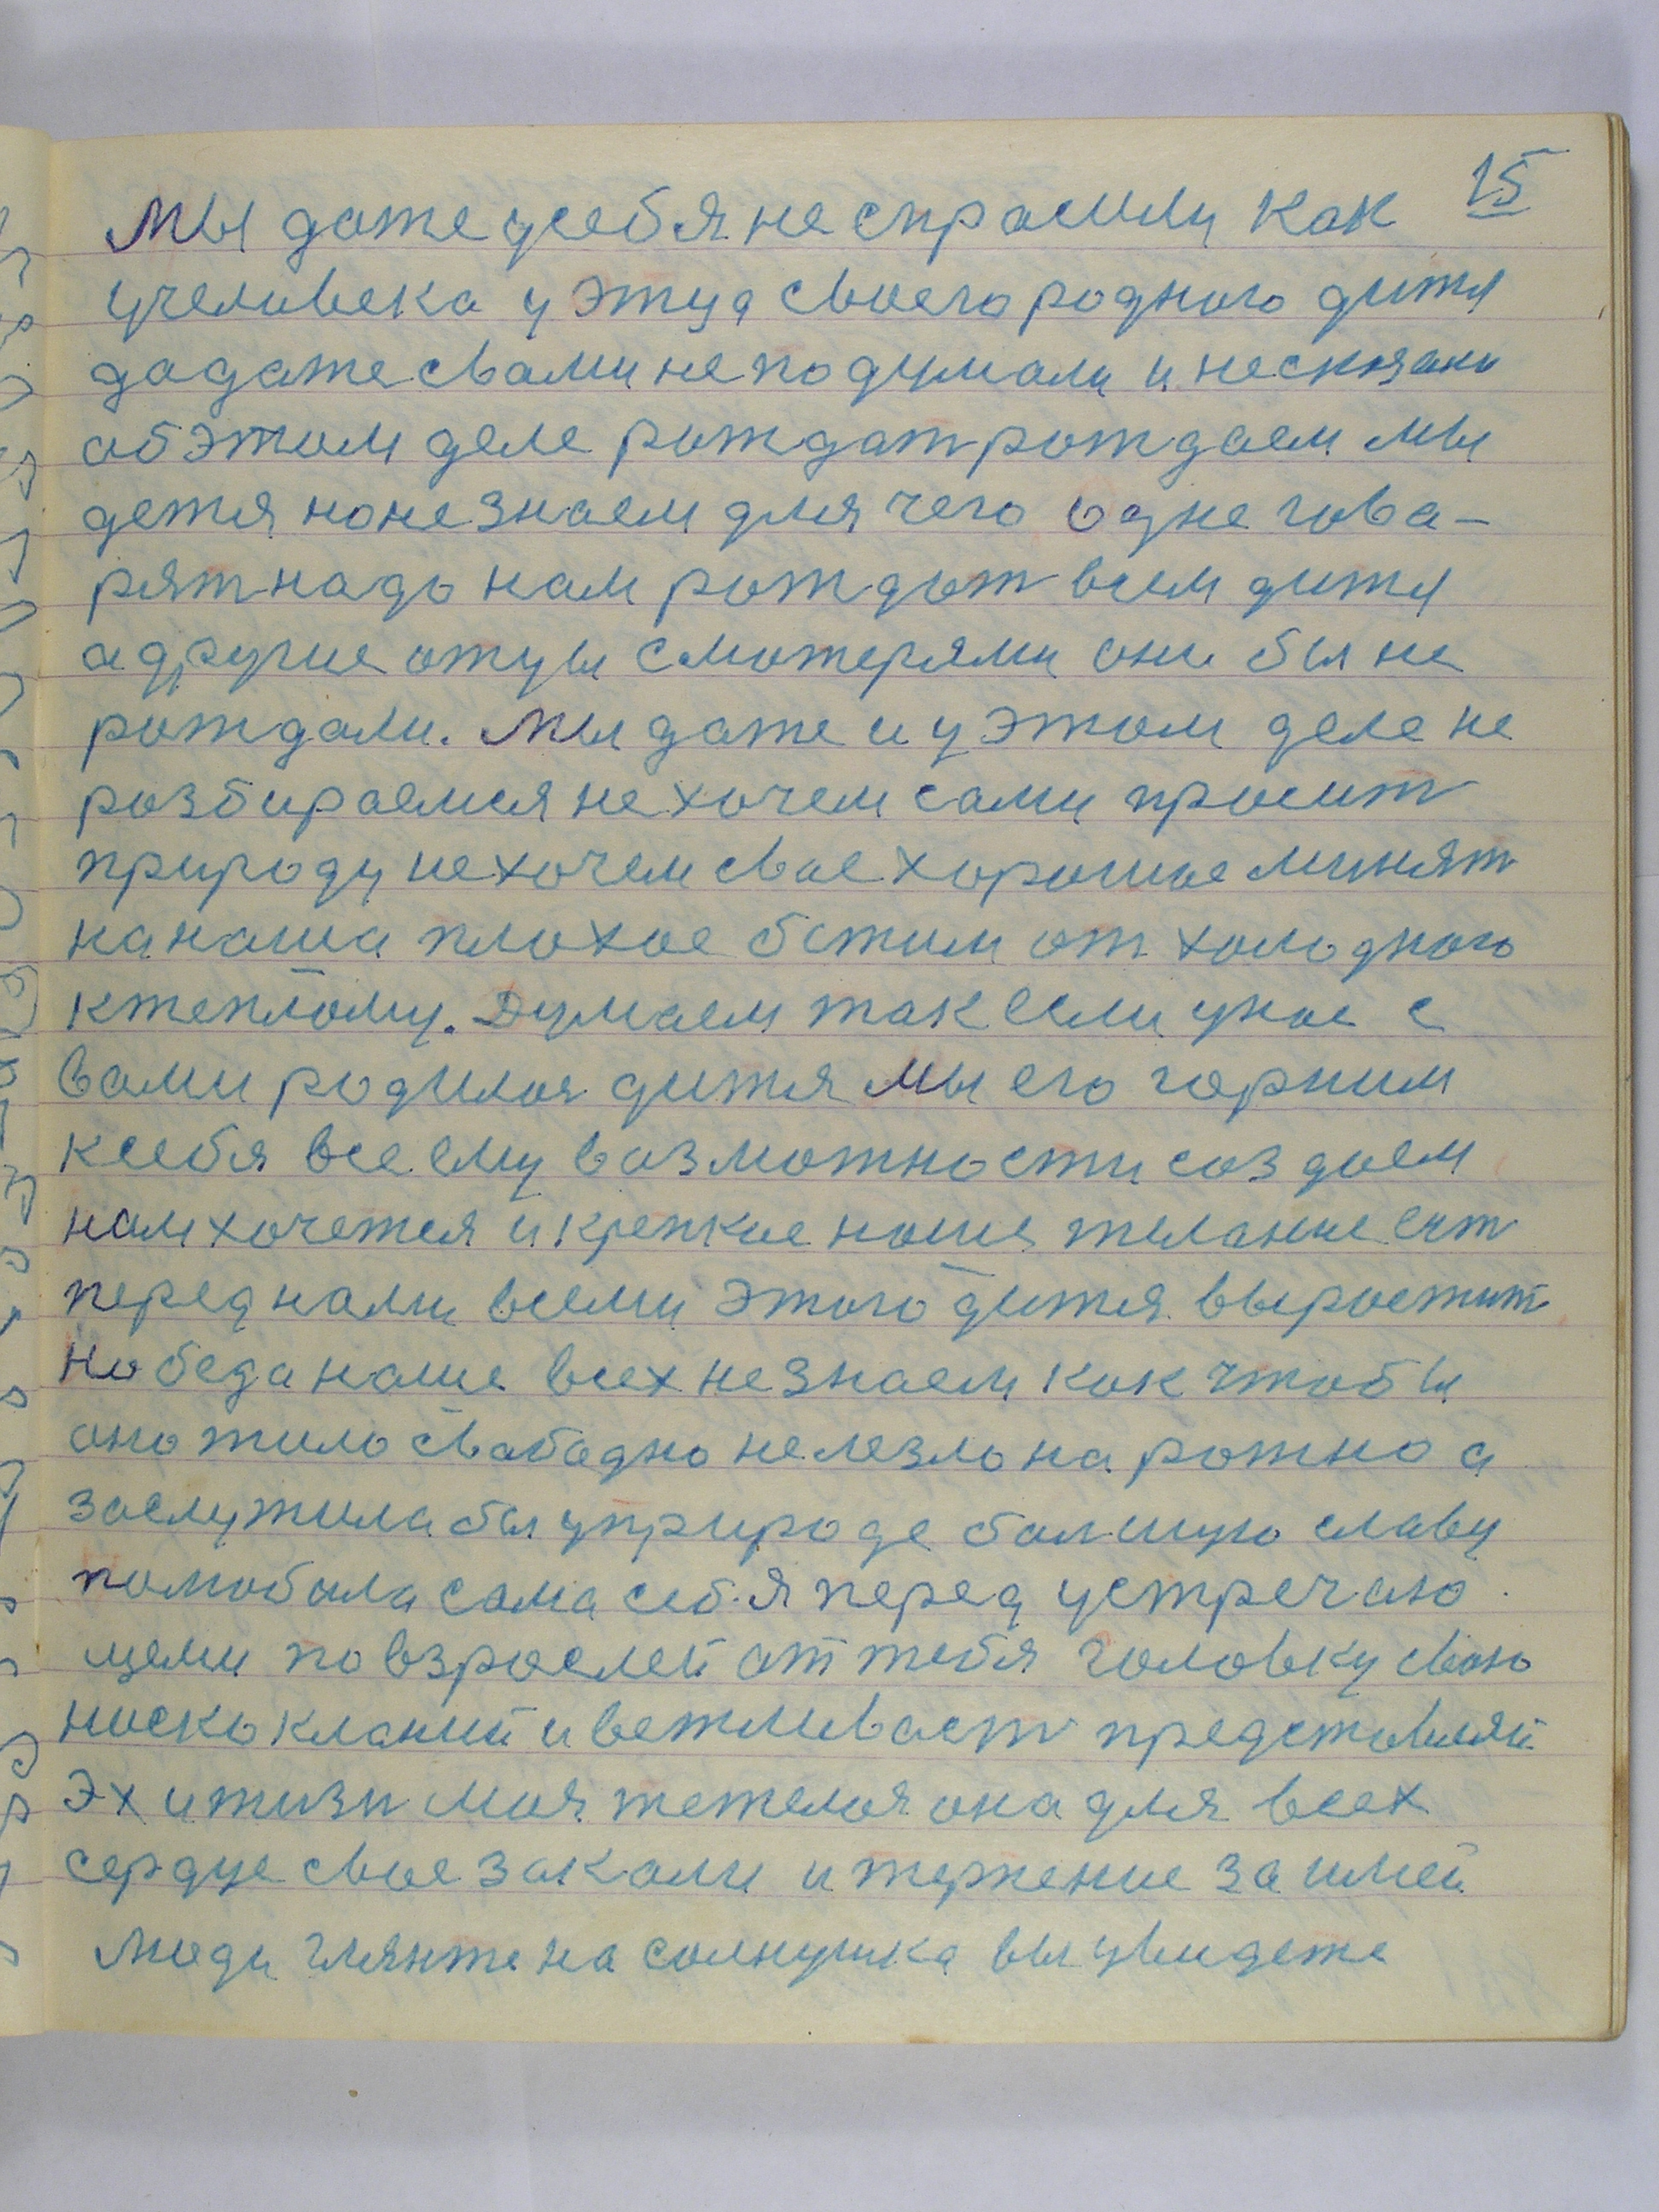 15
Мы даже усебя не спросили как
учеловека у этца своего родного дитя
да даже свами не подумали и несказали
обэтом деле рождат рождаем мы
детя но не знаем для чего одне гова-
рят надо нам рождат всем дитя
а другие отцы сматерями они бы не
рождали. Мы даже и у этом деле не
розбираемся не хочем сами просит
природу не хочем свое хорошое минят
на наша плохое бежим от холодного
ктеплому. Думаем так если унас с
вами родился дитя мы его горним
ксебя все ему возможности создаем
нам хочется и крепкое наше желание ест
перед нами всеми этого дитя выростит
Но беда наше всех не знаем как чтобы
оно жило свабодно не лезло на рожно а
заслужила бы уприроде болшую славу
помобила сама себя перед устречаю
щеми по взрослей от тебя головку свою
ниско кланий и вежливаст представляй
Эх и жизн моя тежелоя она для всех
сердце свое закали и терпение заимей
Люди гляньте на солнушка вы увидете